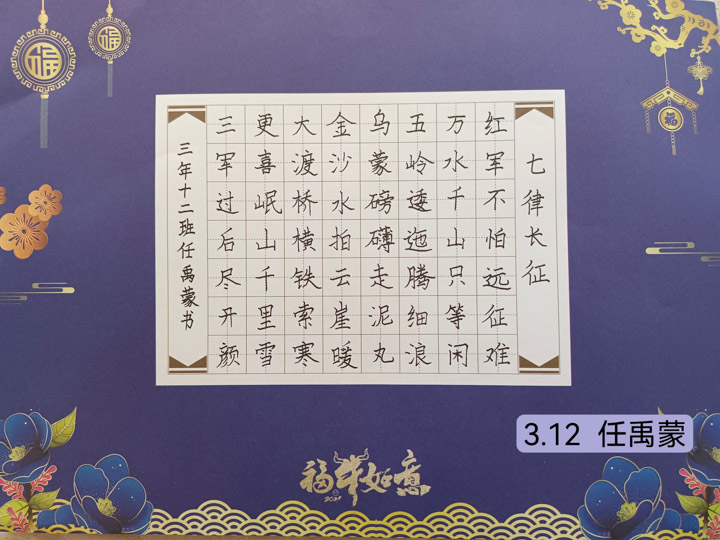 七律长征
红军不怕远征难
万水千山只等闲
五岭逶迤腾细浪
乌蒙磅礴走泥丸
金沙水拍云崖暖
大渡桥横铁索寒
更喜岷山千里雪
三军过后尽开颜
三年十二班任禹蒙书
3.12 任禹蒙
福牛如意
2021
福
福
福